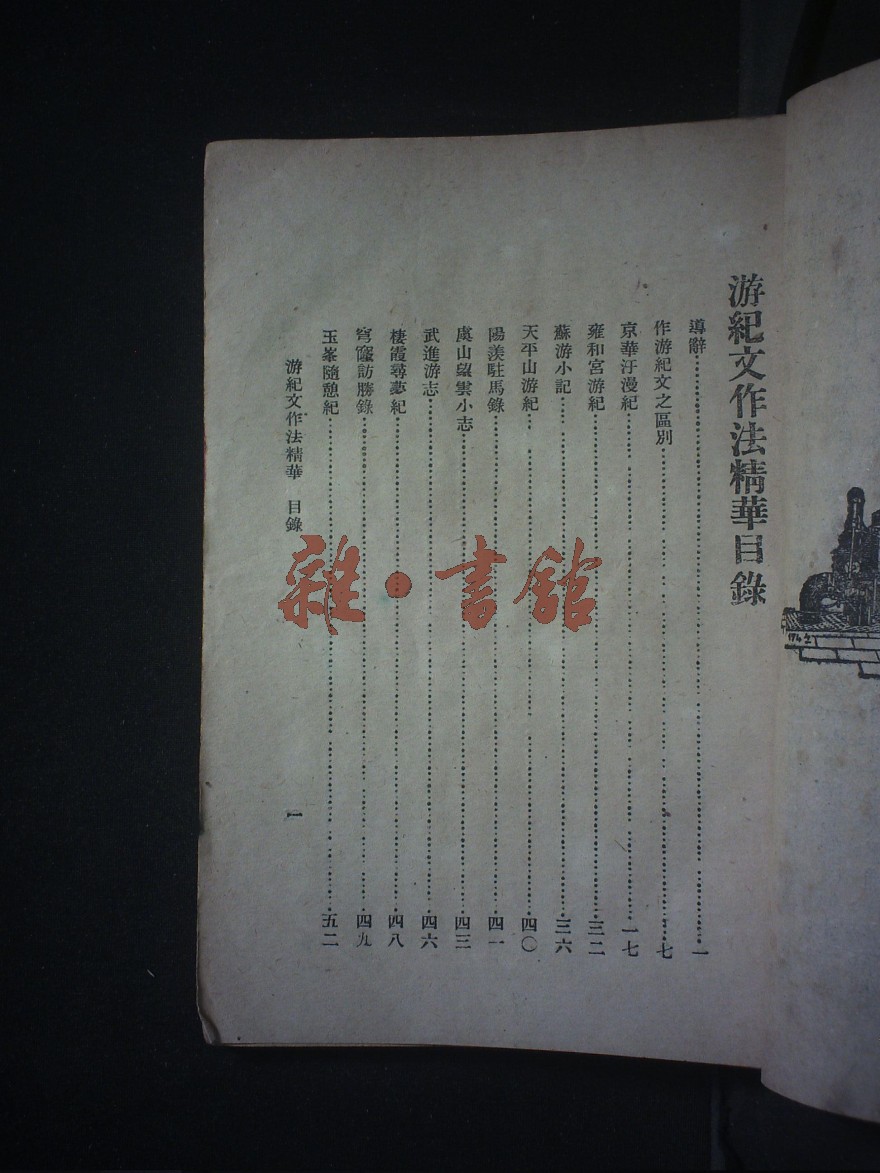 游紀文作法精華目錄
導辭……一
作游紀文之區別……七
京華汗漫紀……一七
雍和宮游紀……三二
蘇游小記……三六
天平山游紀……四〇
陽羨駐馬錄……四一
虞山望雲小志……四三
武進游志……四六
棲霞尋夢紀……四八
穹窿訪勝錄……四九
玉峯隨憩紀……五二
游紀文作法精華 目錄
一
雜·書館